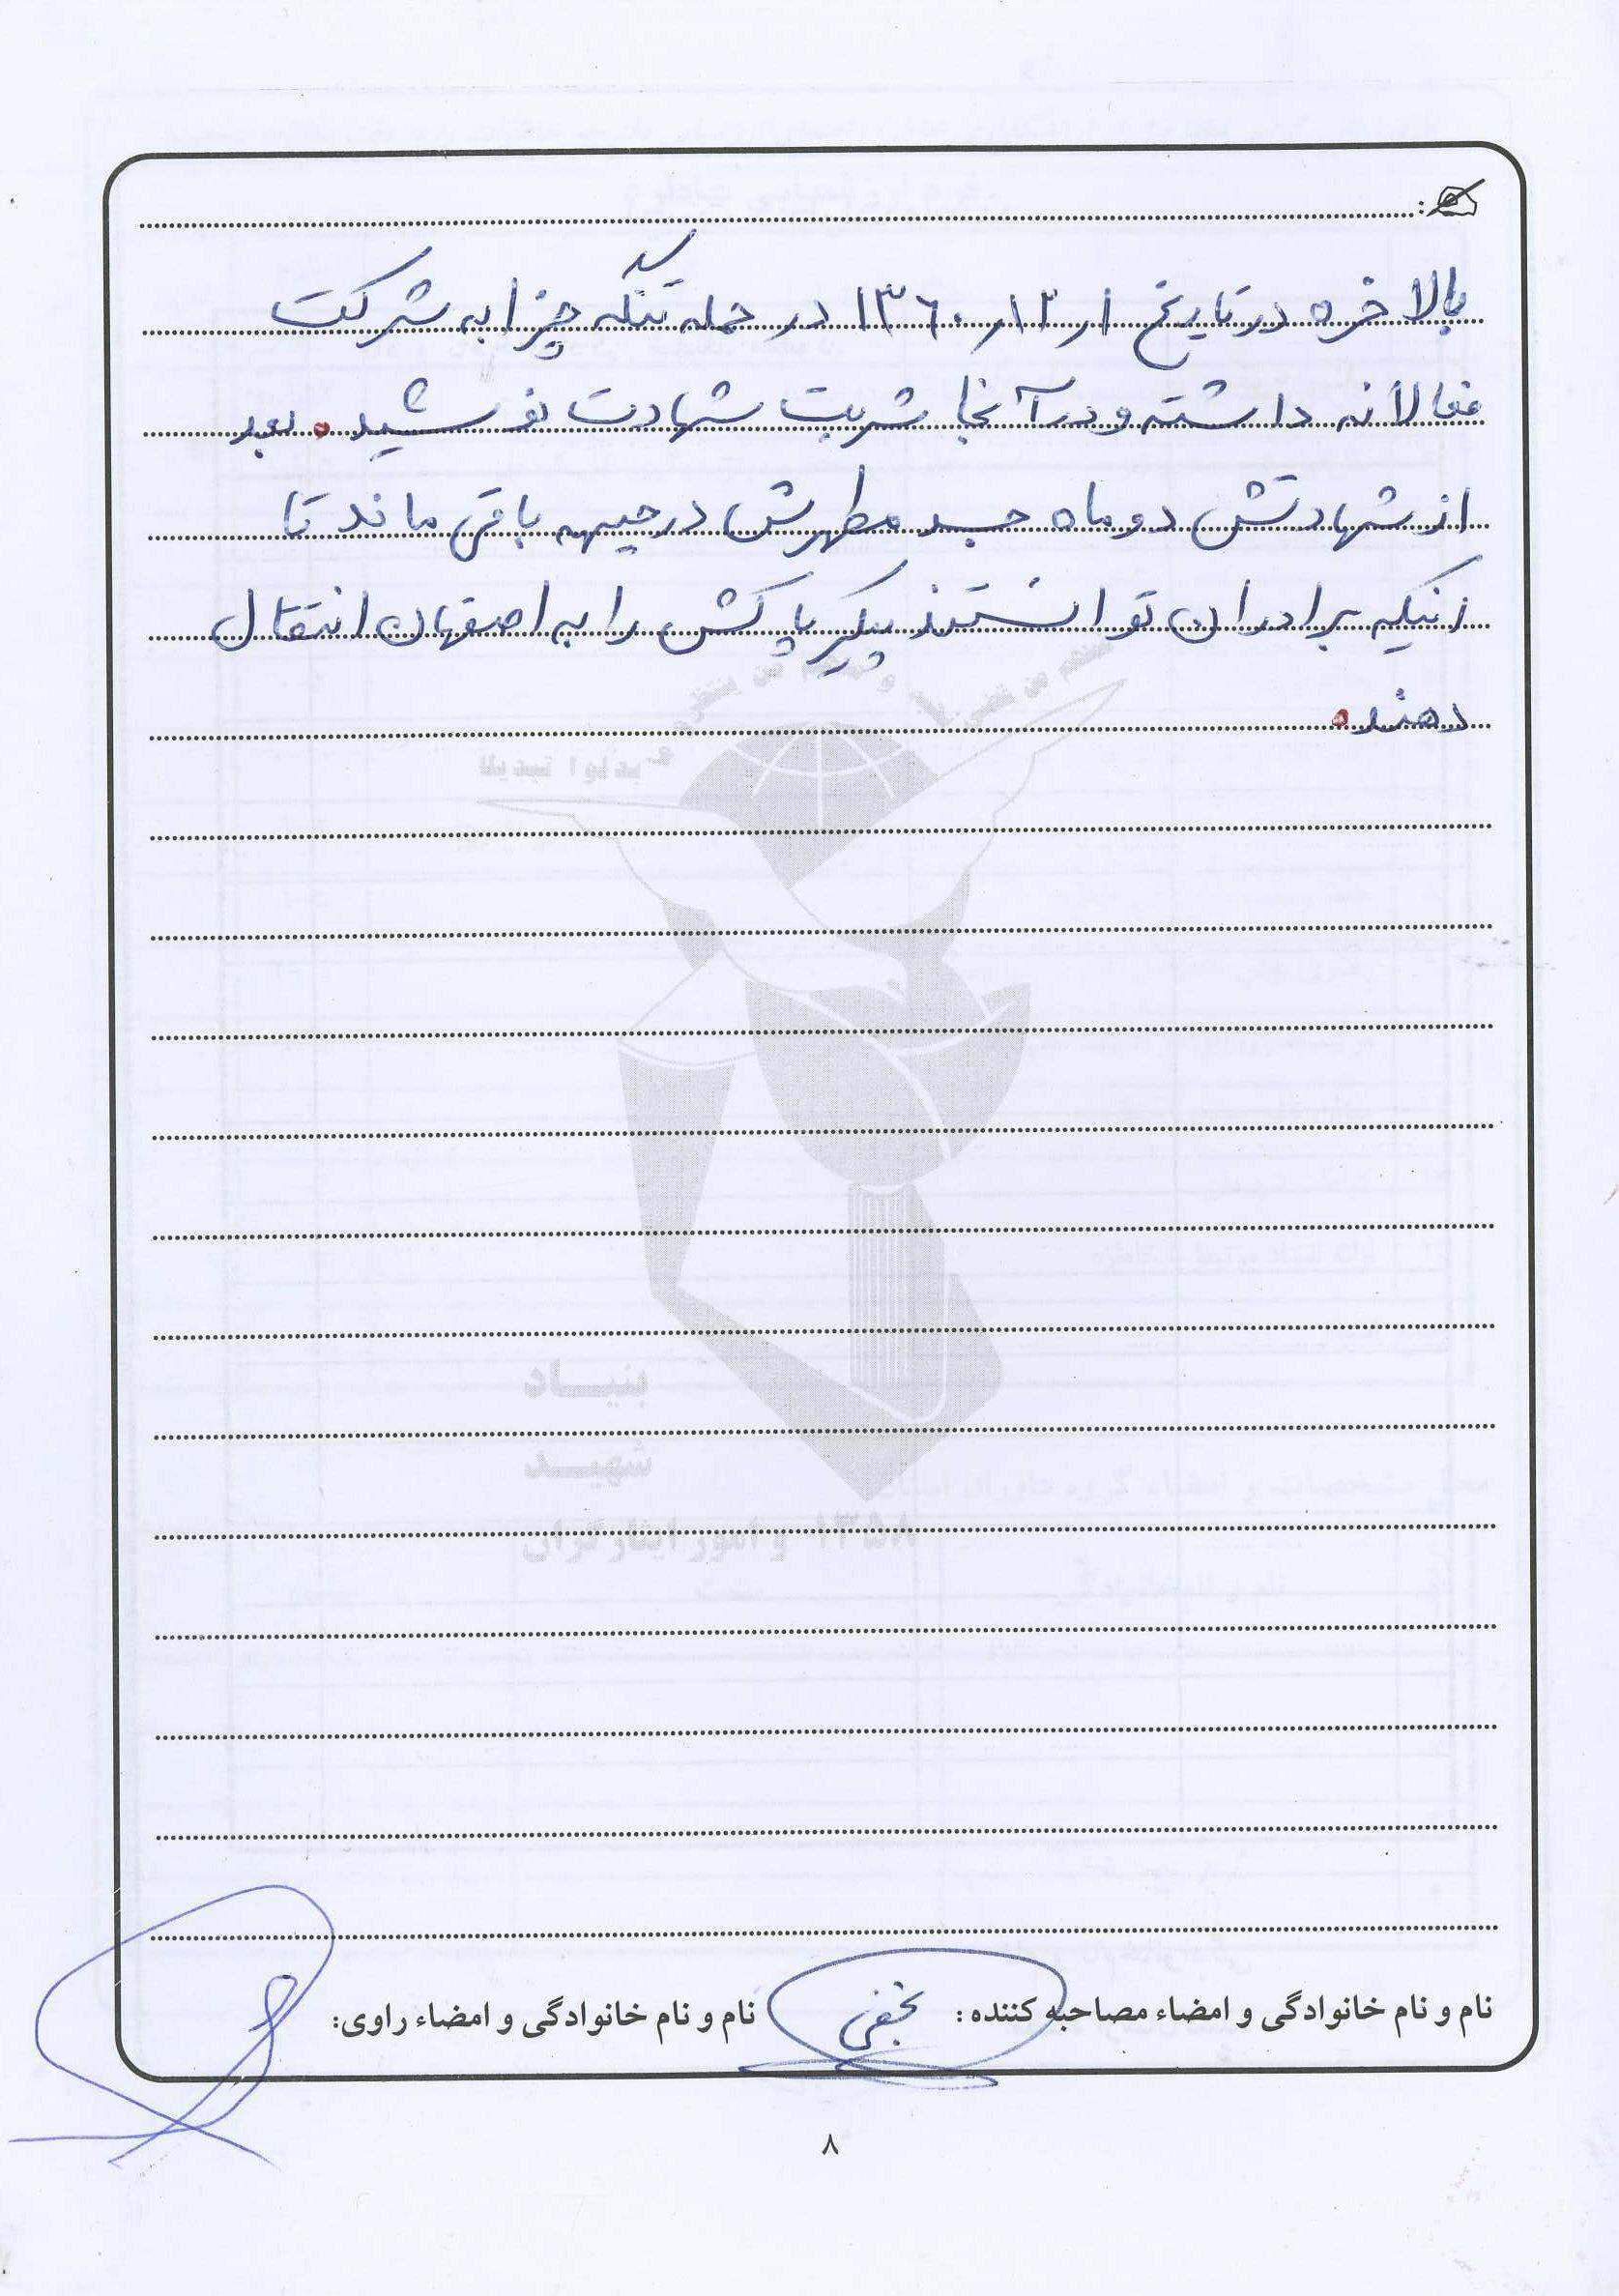 :
بالاخره در تاریخ ۱۳۶۰٫۱۲٫۱ در حمله تنگه چزابه شرکت
فعالانه داشته و در آنجا شربت شهادت نوشید. بعد
از شهادتش دو ماه جسد مطهرش در جبهه باقی ماند تا
زنیکه برادران توانستند پیکر پاکش را به اصفهان انتقال
دهند.
بنیاد
شهید
و امور ایثارگران ۱۳۵۸
نام و نام خانوادگی و امضاء مصاحبه کننده: نجفی نام و نام خانوادگی و امضاء راوی:
۸